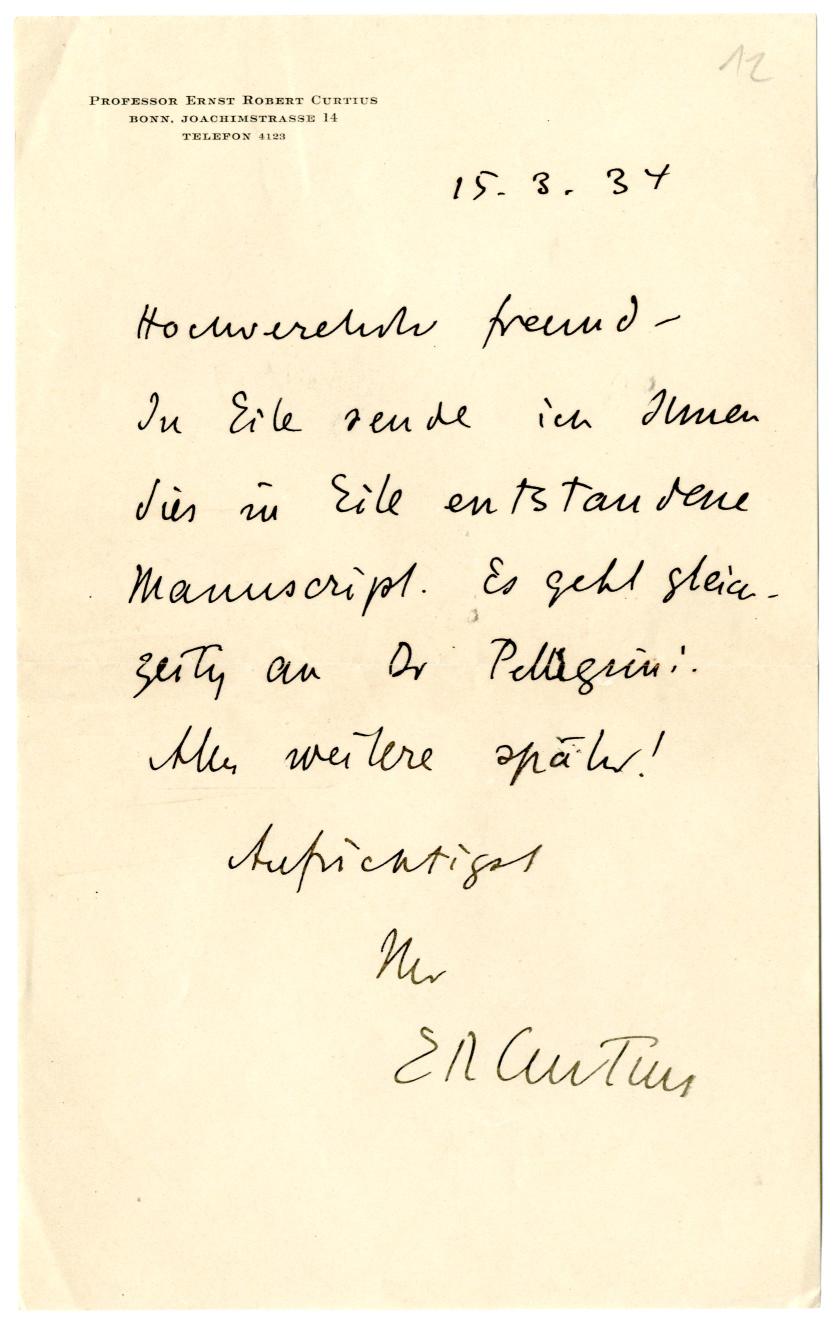 12
PROFESSOR ERNST ROBERT CURTIUS
BONN, JOACHIMSTRASSE 14
TELEFON 4123
15. 3. 34
Hochverehrter Freund –
In Eile sende ich Ihnen
dies in Eile entstandene
Manuscript. Es geht gleich-
zeitig an Dr Pellegrini.
Alles weitere später!
Aufrichtigst
Ihr
ER Curtius